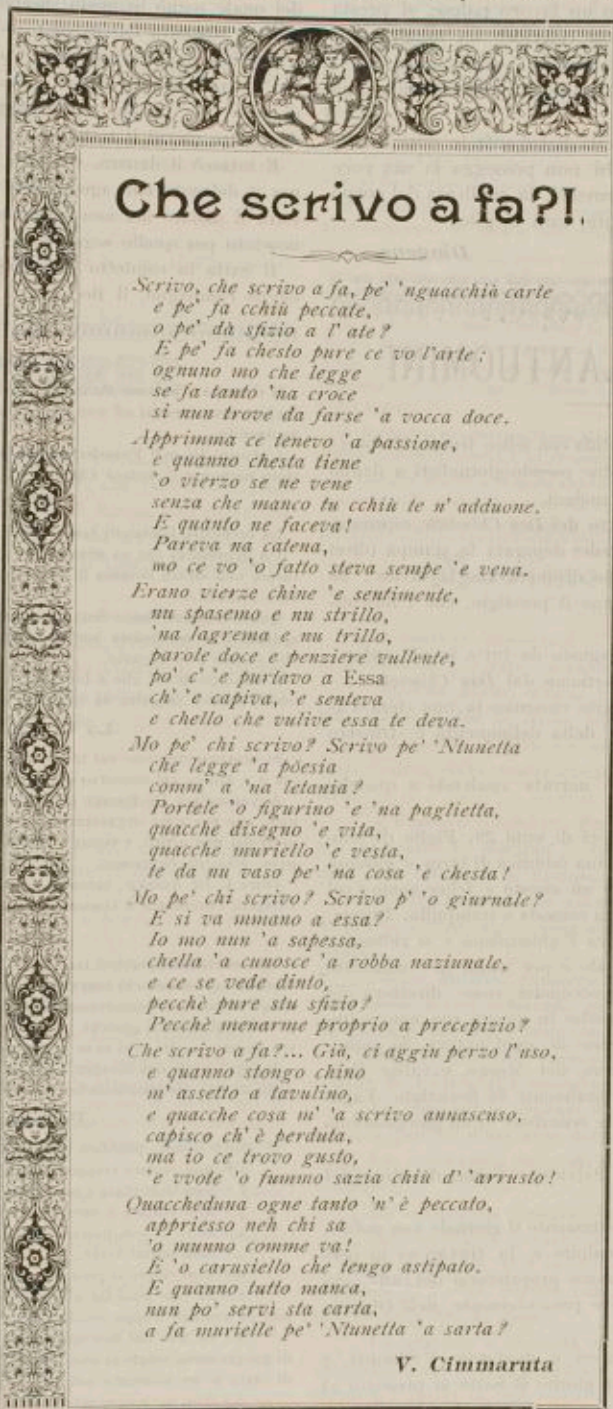 Che scrivo a fa?!.
Scrivo, che scrivo a fa, pe' 'nguacchià carte
e pe' fa cchiù peccate,
o pe' dà sfizio a l' ate?
E pe' fa chesto pure ce vo l'arte;
ognuno mo che legge
se fa tanto 'na croce
si nun trove da farse 'a vocca doce.
Apprimma ce tenevo 'a passione,
e quanno chesta tiene
'o vierzo se ne vene
senza che manco tu cchiù te n' adduone.
E quanto ne faceva!
Pareva na catena,
mo ce vo 'o fatto steva sempe 'e vena.
Erano vierze chine 'e sentimente,
nu spasemo e nu strillo,
'na lagrema e nu trillo,
parole doce e penziere vullente,
po' c' 'e purtavo a Essa
ch' 'e capiva, 'e senteva
e chello che vulive essa te deva.
Mo pe' chi scrivo? Scrivo pe' 'Ntunetta
che legge 'a pòesia
comm' a 'na letania?
Portele 'o figurino 'e 'na paglietta,
quacche disegno 'e vita,
quacche muriello 'e vesta,
te da nu vaso pe' 'na cosa 'e chesta!
Mo pe' chi scrivo? Scrivo p' 'o giurnale?
E si va mmano a essa?
Io mo nun 'a sapessa,
chella 'a cunosce 'a robba naziunale,
e ce se vede dinto,
pecchè pure stu sfizio?
Pecchè menarme proprio a precepizio?
Che scrivo a fa?... Già, ci aggiu perzo l'uso,
e quanno stongo chino
m' assetto a tavulino,
e quacche cosa m' 'a scrivo annascuso,
capisco ch' è perduta,
ma io ce trovo gusto,
'e vvote 'o fummo sazia chiù d' 'arrusto!
Quaccheduna ogne tanto 'n' è peccato,
appriesso neh chi sa
'o munno comme va!
È 'o carusiello che tengo astipato.
E quanno tutto manca,
nun po' servì sta carta,
a fa murielle pe' 'Ntunetta 'a sarta?
V. Cimmaruta